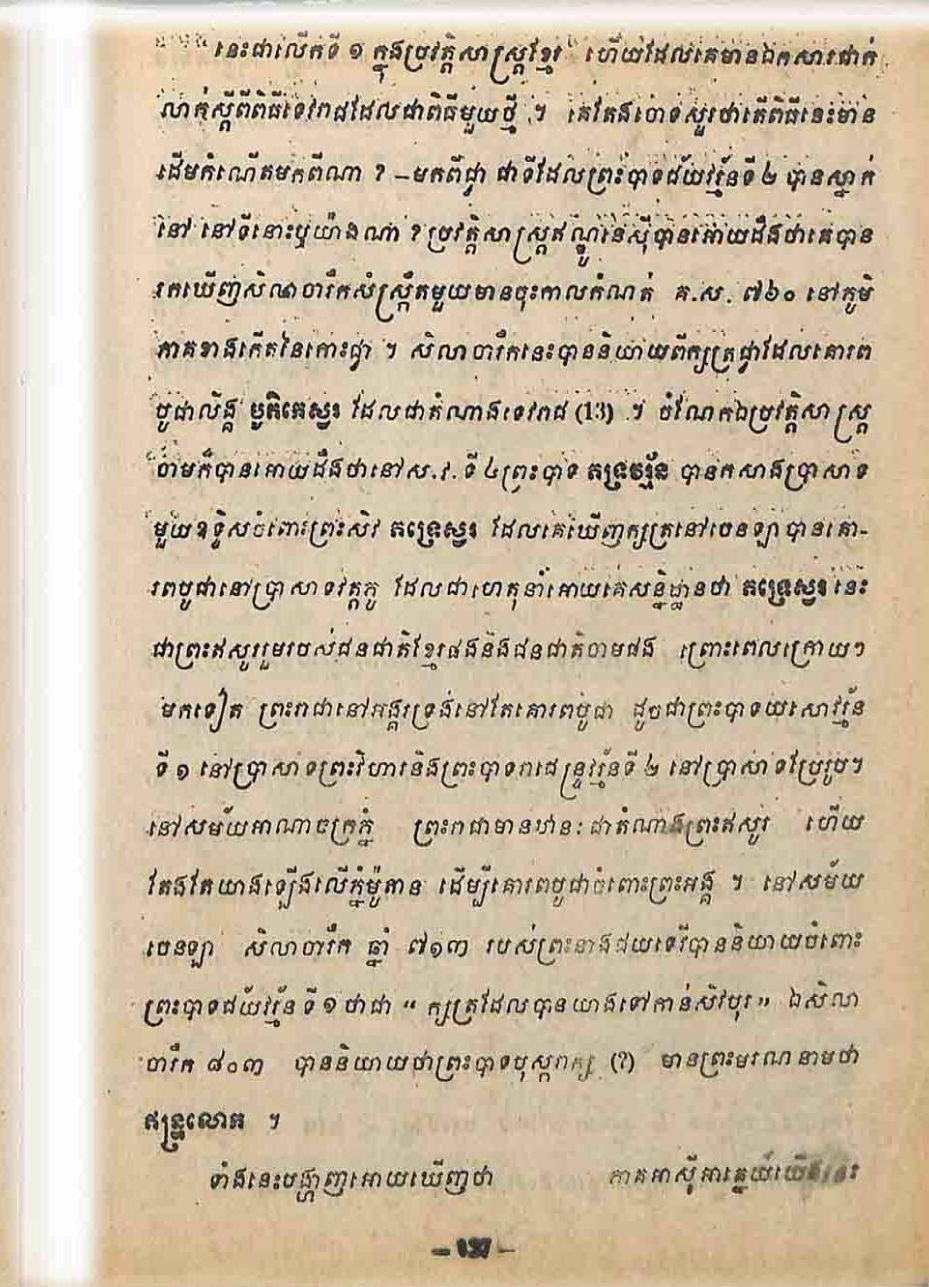 នេះជាលើកទី ១ ក្នុងប្រវត្តិសាស្ត្រខ្មែរ ហើយដែលគេមានឯកសារជាក់
លាក់ស្តីពីពិធីទេវរាជដែលជាពិធីមួយថ្មី ។ គេតែងចោទសួរថាតើពិធីនេះមាន
ដើមកំណើតមកពីណា ? –មកពីជ្វា ជាទីដែលព្រះបាទជ័យវរ្ម័នទី ២ បានស្នាក់
នៅ នៅទីនោះឬយ៉ាងណា ? ប្រវត្តិសាស្ត្រឥណ្ឌូនេស៊ីបានអោយដឹងថាគេបាន
រកឃើញសិលាចារឹកសំស្ក្រឹតមួយមានចុះកាលកំណត់ គ.ស. ៧៦០ នៅភូមិ
ភាគខាងកើតនៃកោះជ្វា ។ សិលាចារឹកនេះបាននិយាយពីក្សត្រជ្វាដែលគោរព
បូជាលិង្គ បូតិកេស្វរ ដែលជាតំណាងទេវរាជ (13) ។ ចំណែកឯប្រវត្តិសាស្ត្រ
ចាមក៏បានអោយដឹងថានៅស.វ.ទី ៤ព្រះបាទ ភទ្រវរ្ម័ន បានកសាងប្រាសាទ
មួយឧទ្ទិសចំពោះព្រះសិវ ភទ្រេស្វរ ដែលគេឃើញក្សត្រនៅចេនឡាបានគោ-
រពបូជានៅប្រាសាទវត្តភូ ដែលជាហេតុនាំអោយគេសន្និដ្ឋានថា ភទ្រេស្វរ នេះ
ជាព្រះឥសូររួមរបស់ជនជាតិខ្មែរផងនិងជនជាតិចាមផង ព្រោះពេលក្រោយៗ
មកទៀត ព្រះរាជានៅអង្គរទ្រង់នៅតែគោរពបូជា ដូចជាព្រះបាទយសោវរ្ម័ន
ទី ១ នៅប្រាសាទព្រះវិហារនិងព្រះបាទរាជេន្ទ្រវរ្ម័នទី ២ នៅប្រាសាទប្រែរូប។
នៅសម័យអាណាចក្រភ្នំ ព្រះរាជាមានឋានៈជាតំណាងព្រះឥសូរ ហើយ
តែងតែយាងឡើងលើភ្នំម៉ូតាន ដើម្បីគោរពបូជាចំពោះព្រះអង្គ ។ នៅសម័យ
ចេនឡា សិលាចារឹក ឆ្នាំ ៧១៣ របស់ព្រះនាងជយទេវីបាននិយាយចំពោះ
ព្រះបាទជ័យវរ្ម័នទី ១ ថាជា « ក្សត្រដែលបានយាងទៅកាន់សិវបុរ» ឯសិលា
ចារឹក ៨០៣ បាននិយាយថាព្រះបាទបុស្ករាក្ស (?) មានព្រះមរណនាមថា
ឥន្ទ្រលោក ។
ទាំងនេះបង្ហាញអោយឃើញថា ភាគអាស៊ីអាគ្នេយ៍យើងនេះ
– 137 –